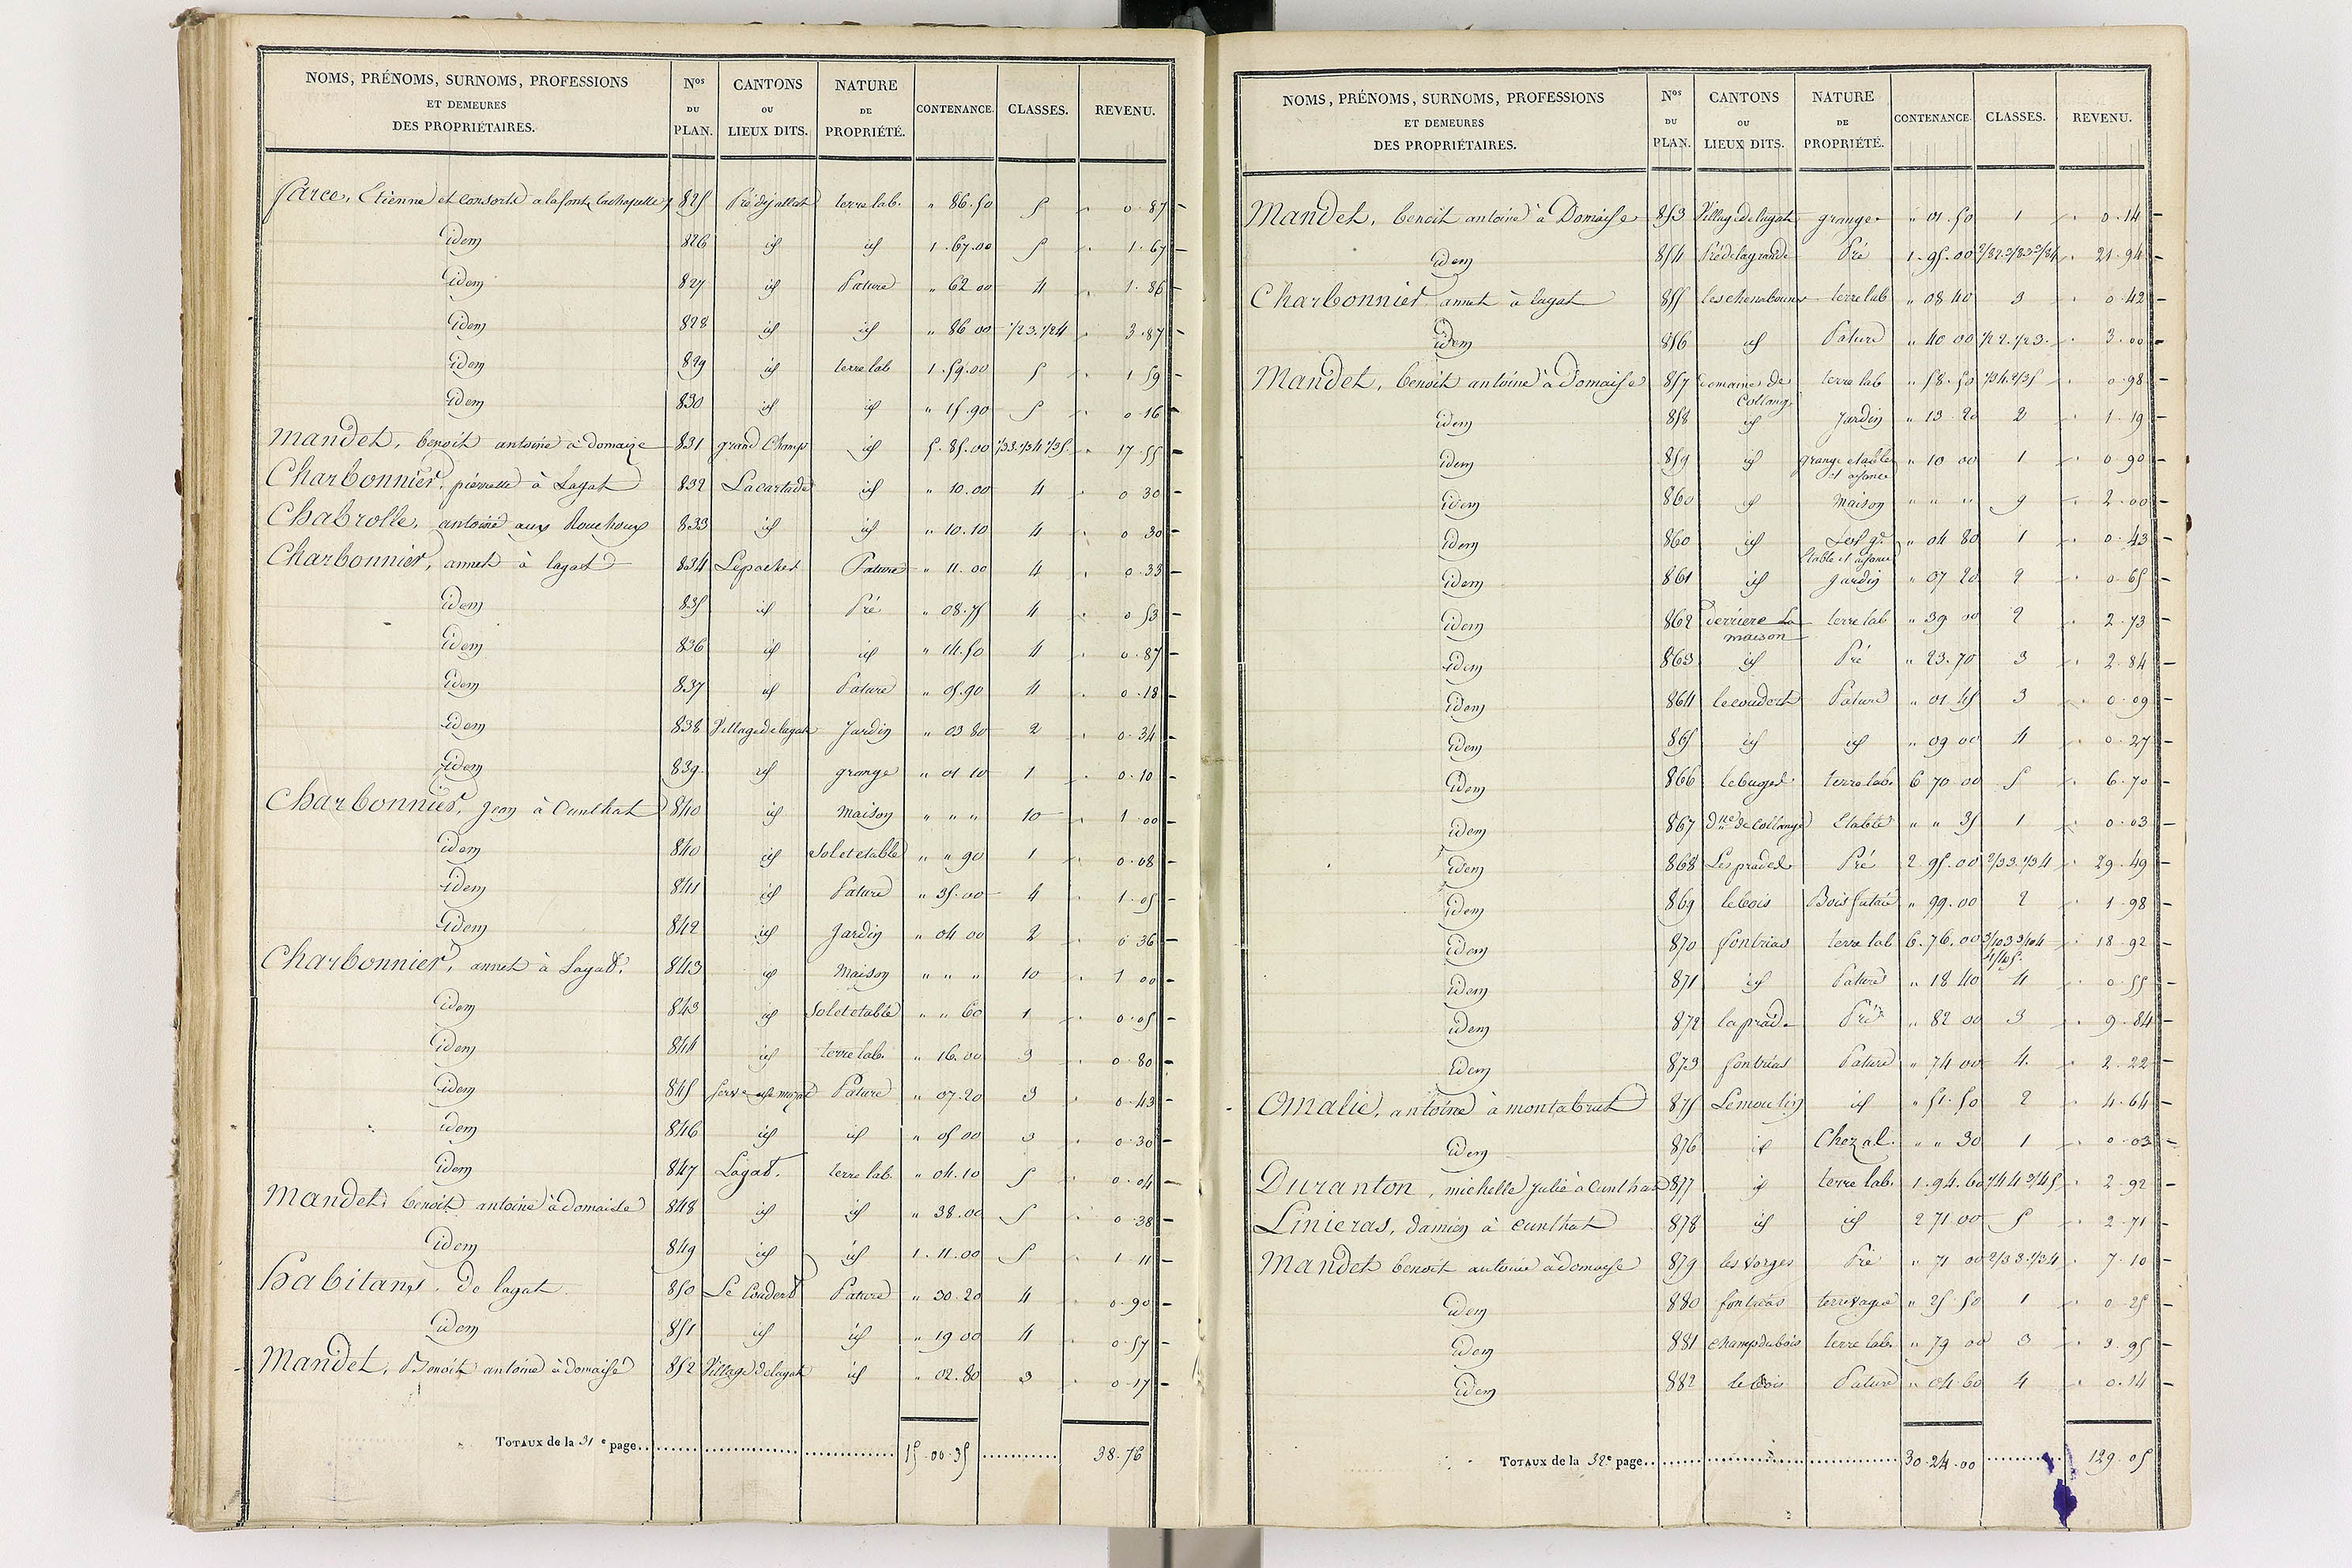 NOMS, PRÉNOMS, SURNOMS, PROFESSIONS ET DEMEURES DES PROPRIÉTAIRES. Nos DU PLAN. CANTONS OU LIEUX DITS. NATURE DE PROPRIÉTÉ. CONTENANCE. CLASSES. REVENU.
farce, Etienne et consorts a lafont, lachapelle 825 Pré dejallat terre lab. " 86.50 5 0.87
idem 826 id id 1.67.00 5 1.67
idem 827 id Pature " 62 00 4 1.86
idem 828 id id " 86 00 1/2 3. 1/2 4 3.87
idem 829 id terre lab 1.59.00 5 1 59
idem 830 id id " 15.90 5 0 16
Mandet, benoit antoine à domaize 831 grand Champ id 5.85.00 1/3 3. 1/3 4 1/3 5. 17.55
Charbonnier, pierrette à Lagat 832 Lacartade id " 10.00 4 0 30
Chabrolle, antoine aux Rouchoux 833 id id " 10.10 4 0 30
Charbonnier, annet à lagat 834 Lepacher Pature " 11.00 4 0.33
idem 835 id Pré " 08.75 4 0 53
idem 836 id id " 14.50 4 0.87
idem 837 id Pature " 05.90 4 0.18
idem 838 Village de lagat Jardin " 03 80 2 0.34
idem 839. id grange " 01 10 1 0.10
Charbonnier, jean à Cunlhat 840 id Maison " " " 10 1 00
idem 840 id Sol et etable " " 90 1 0.08
idem 841 id Pature " 35.00 4 1.05
idem 842 id Jardin " 04 00 2 0 36
Charbonnier, annet à Lagat. 843 id Maison " " " 10 1 00
idem 843 id Sol et etable " " 60 1 0.05
idem 844 id terre lab. " 16.00 3 0 80
idem 845 Pature " 07.20 3 0.43
idem 846 id id " 05 00 3 0.30
idem 847 Lagat. terre lab. " 04.10 5 0.04
Mandet, benoit antoine à domaise 848 id id " 38.00 5 0 38
idem 849 id id 1.11.00 5 1.11
habitans. de lagat 850 Le Couderd Pature " 30.20 4 0.90
idem 851 id id " 19 00 4 0.57
Mandet, Benoit antoine à domaise 852 Village de lagat id " 02.80 3 0.17
TOTAUX de la 31e page 15.00.35 38.76
NOMS, PRÉNOMS, SURNOMS, PROFESSIONS ET DEMEURES DES PROPRIÉTAIRES. Nos DU PLAN. CANTONS OU LIEUX DITS. NATURE DE PROPRIÉTÉ. CONTENANCE. CLASSES. REVENU.
Mandet, benoit antoine à Domaise 853 Village de lagat grange " 01.50 1 0.14
idem 854 Pré de lagrande Pré 1.95.00 21.94
Charbonnier annet à lagat 855 les chenebourx terre lab " 08 40 3 0.42
idem 856 id Pature " 40 00 1/2 2. 1/2 3. 3.00
Mandet, benoit antoine à Domaise 857 domaine de Collange terre lab " 58.50 1/3 4. 2/3 5 0.98
idem 858 id Jardin " 13 20 2 1.19
idem 859 id grange etable et aisance " 10 00 1 0.90
idem 860 id Maison " " " 9 2.00
idem 860 id Sol ge Etable et aisance " 04 80 1 0.43
idem 861 id Jardin " 07 20 2 0.65
idem 862 derriere la maison terre lab " 39 00 2 2.73
idem 863 id Pré " 23.70 3 2.84
idem 864 lecouderd Pature " 01.45 3 0.09
idem 865 id id " 09 00 4 0.27
idem 866 lebuget terre lab. 6 70 00 5 6.70
idem 867 dne de Collange Etable " " 35 1 0.03
idem 868 Les prades Pré 2 95.00 2/3 3. 1/3 4 29.49
idem 869 le bois Bois futaie " 99.00 2 1.98
idem 870 fontrias terre lab 6.76.00 3/10 3 3/10 4 4/10 5. 18.92
idem 871 id Pature " 18 40 4 0.55
idem 872 la prade Pré " 82 00 3 9.84
idem 873 fontrias Pature " 74 00 4. 2.22
Omalie, antoine à montabrut 875 Lemoulin id " 51.50 2 4.64
idem 876 id Chezal. " " 30 1 0.03
Duranton, michelle julie à Cunlhat 877 id terre lab. 1.94.60 1/4 4 3/4 5 2.92
Linieras, damien à cunlhat 878 id id 2 71.00 5 2.71
Mandet benoit antoine à domaise 879 les Vorges Pré " 71 00 2/3 3. 1/3 4 7.10
idem 880 fontrias " 25 50 1 0.25
idem 881 champ du bois terre lab. " 79 00 3 3.95
idem 882 le bois Pature " 04.60 4 0.14
TOTAUX de la 32e page 30.24.00 129.05